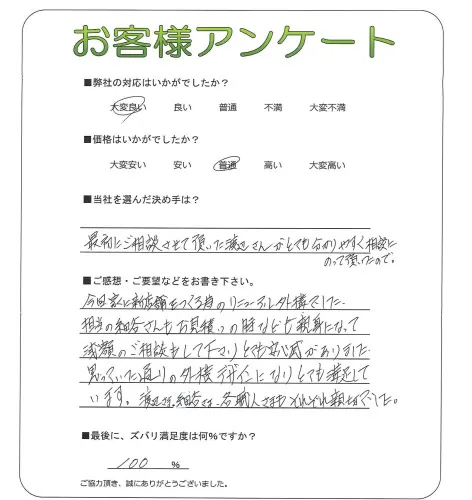 お客様アンケート
■弊社の対応はいかがでしたか？
大変良い 良い 普通 不満 大変不満
■価格はいかがでしたか？
大変安い 安い 普通 高い 大変高い
■当社を選んだ決め手は？
最初にご相談させて頂いた渡辺さんがとても分かりやすく相談に
のって頂いたので。
■ご感想・ご要望などをお書き下さい。
今回家に新店舗をつくる為のリニューアル外構でした。
担当の細谷さんもお見積りの時なども親身になって
減額のご相談もして下さりとても安心感がありました
思っていた通りの外構デザインになりとても満足して
います。渡辺さん、細谷さん、各職人さまもそれぞれ親切でした。
■最後に、ズバリ満足度は何％ですか？
100 %
ご協力頂き、誠にありがとうございました。